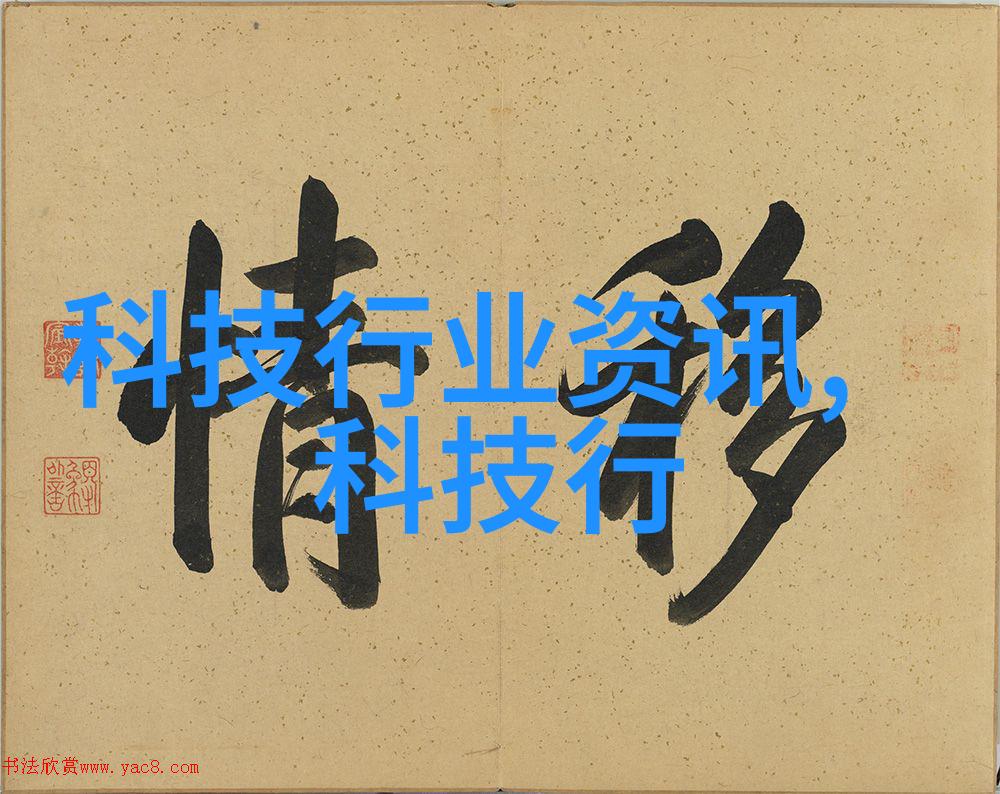 科技行业资讯,
科技行
移情
书法欣赏www.yac8.com